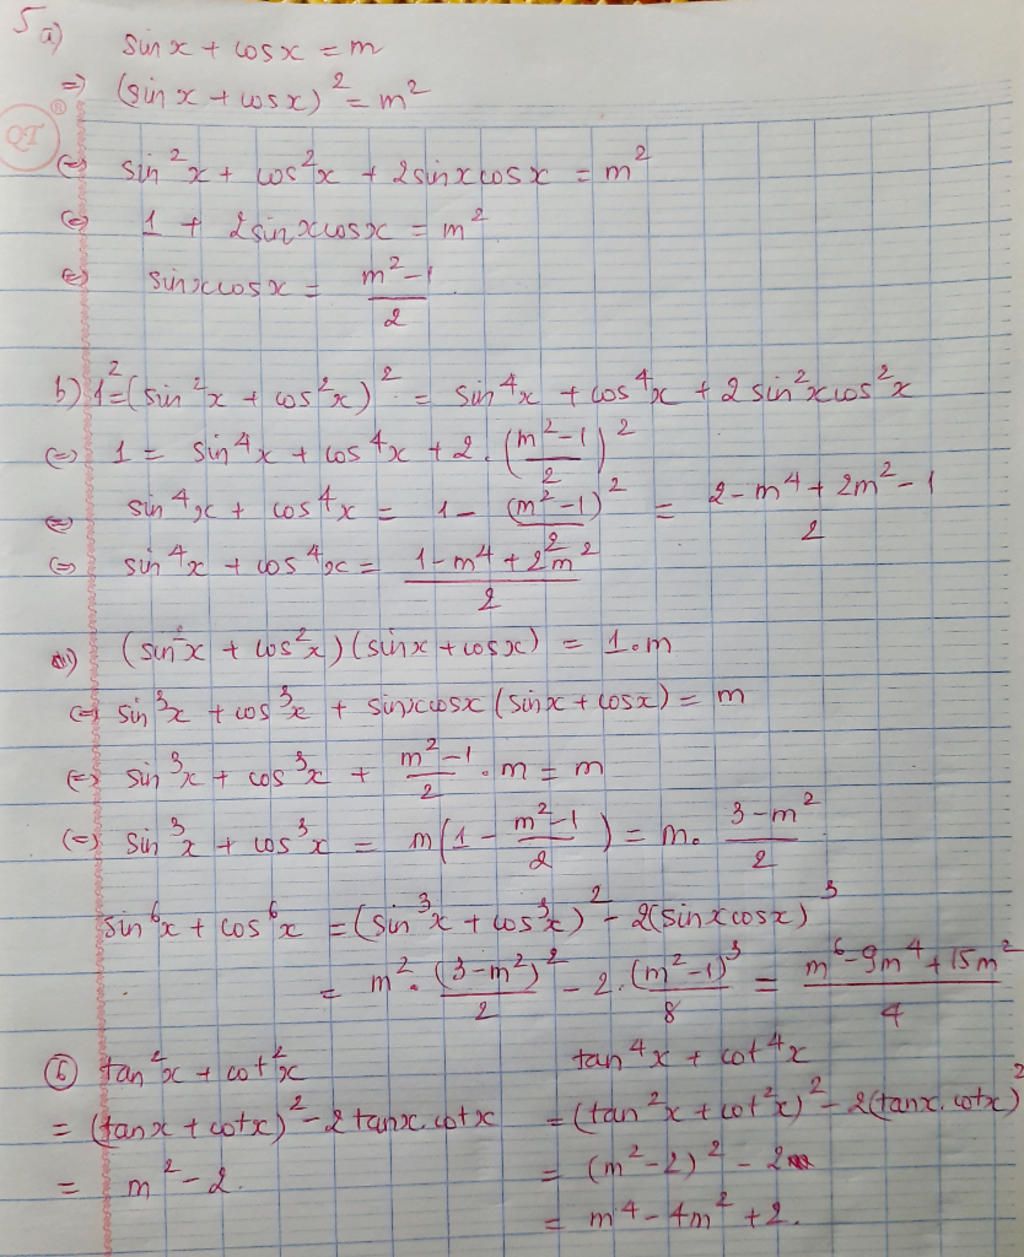 5 a) sin x + cos x = m
=> (sin x + cos x)² = m²
QT ®
<=> sin²x + cos²x + 2sinxcosx = m²
<=> 1 + 2sinxcosx = m²
<=> sinxcosx = (m²-1)/2
b) 1² = (sin²x + cos²x)² = sin⁴x + cos⁴x + 2sin²xcos²x
<=> 1 = sin⁴x + cos⁴x + 2.((m²-1)/2)²
<=> sin⁴x + cos⁴x = 1 - (m²-1)²/2 = (2-m⁴+2m²-1)/2
<=> sin⁴x + cos⁴x = (1-m⁴+2m²)/2
(sin²x + cos²x)(sinx + cosx) = 1.m
<=> sin³x + cos³x + sinxcosx(sinx + cosx) = m
<=> sin³x + cos³x + (m²-1)/2 . m = m
<=> sin³x + cos³x = m(1 - (m²-1)/2) = m. (3-m²)/2
sin⁶x + cos⁶x = (sin³x + cos³x)² - 2(sinxcosx)³
= m². (3-m²)²/2 - 2.(m²-1)³/8 = (m⁶-9m⁴+15m²)/4
⑥ tan²x + cot²x
= (tanx + cotx)² - 2tanx.cotx
= m² - 2.
tan⁴x + cot⁴x
= (tan²x + cot²x)² - 2(tanx.cotx)²
= (m²-2)² - 2
= m⁴ - 4m² + 2.